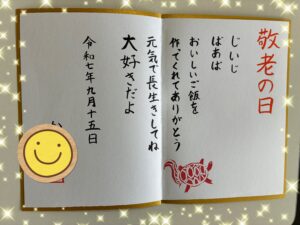 敬老の日
じいじ
ばあば
おいしいご飯を
作ってくれてありがとう
元気で長生きしてね
大好きだよ
令和七年九月十五日